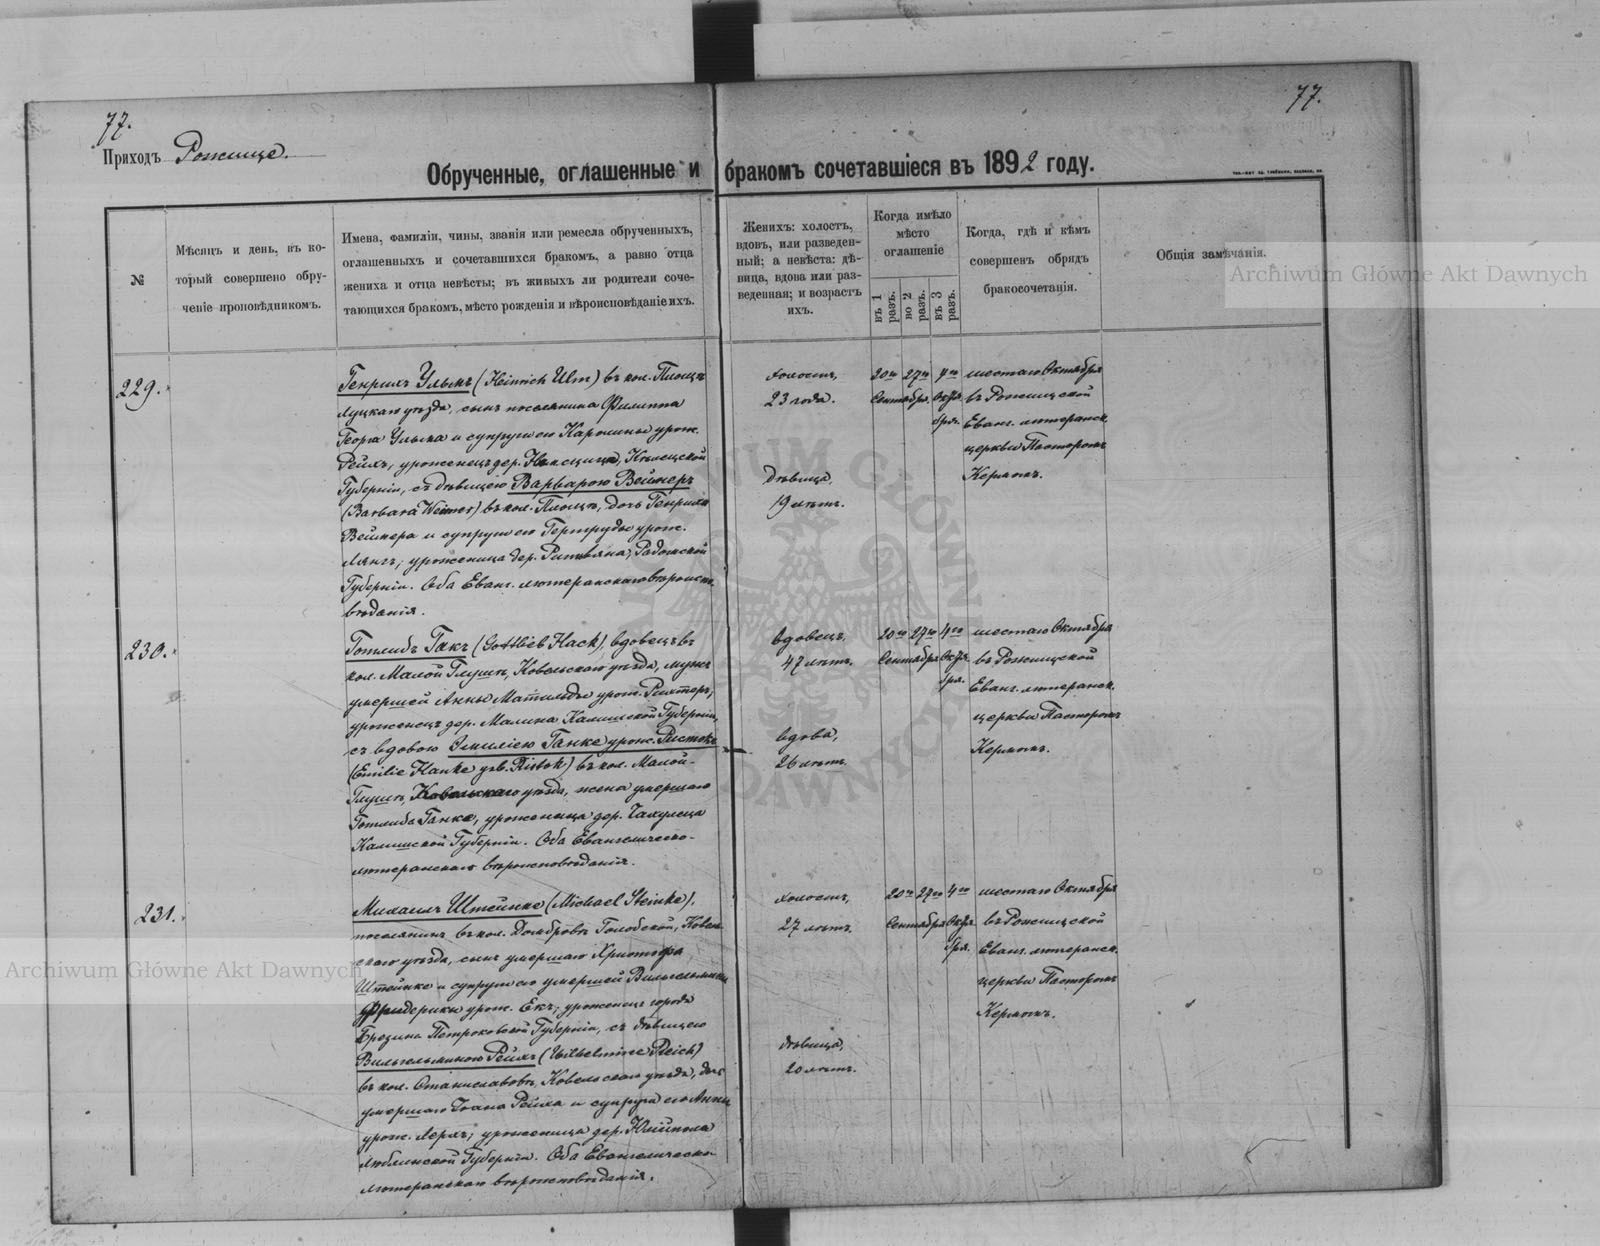 77.
77.
Приходъ Рожище.
Обрученные, оглашенные и бракомъ сочетавшіеся въ 1892 году.
№
Мѣсяцъ и день, въ ко-
торый совершено обру-
ченіе проповѣдникомъ.
Имена, фамиліи, чины, званія или ремесла обрученныхъ,
оглашенныхъ и сочетавшихся бракомъ, а равно отца
жениха и отца невѣсты; въ живыхъ ли родители соче-
тающихся бракомъ, мѣсто рожденія и вѣроисповѣданіе ихъ.
Женихъ: холостъ,
вдовъ, или разведен-
ный; а невѣста: дѣ-
вица, вдова или раз-
веденная; и возрастъ
ихъ.
Когда имѣло
мѣсто
оглашеніе
въ 1 разъ.
во 2 разъ.
въ 3 разъ.
Когда, гдѣ и кѣмъ
совершенъ обрядъ
бракосочетанія.
Общія замѣчанія.
Archiwum Główne Akt Dawnych
229.
Генрихъ Ульмъ (Heinrich Ulm) въ кол. Площѣ
Луцкаго уѣзда, сынъ поселянина Филиппа
Георга Ульма и супруги его Каролины урож.
Рейхъ, уроженецъ дер. Кѣлецкой
Губерніи, съ дѣвицею Варварою Вейнеръ
(Barbara Weiner) въ кол. Площѣ, дочь Генриха
Вейнера и супруги его Гертруды урож.
Лянгъ, уроженица дер. Рытвяна, Радомской
Губерніи. Оба Еванг. лютеранскаго вѣроиспо-
вѣданія.
холостъ,
23 года.
дѣвица,
19 лѣтъ.
20го 27го 4го
Сентября. Октя-
бря.
шестаго Октября
въ Рожищской
Еванг. лютеранск.
церкви Пасторомъ
Кермомъ.
230.
Готлибъ Гакъ (Gottlieb Hack), вдовецъ въ
кол. Малой Глушѣ, Ковельскаго уѣзда, мужъ
умершей Анны Матильды урож. Рихтеръ,
уроженецъ дер. Малина Калишской Губерніи,
съ вдовою Эмиліею Ганке урож. Ристокъ
(Emilie Hanke geb. Ristok) въ кол. Малой-
Глушѣ, Ковельскаго уѣзда, жена умершаго
Готлиба Ганке, уроженица дер.
Калишской Губерніи. Оба Евангелическо-
лютеранскаго вѣроисповѣданія.
вдовецъ,
47 лѣтъ.
вдова,
26 лѣтъ.
20го 27го 4го
Сентября Октя-
бря.
шестаго Октября
въ Рожищской
Еванг. лютеранск.
церкви Пасторомъ
Кермомъ.
231.
Михаилъ Штейнке (Michael Steinke),
поселянинъ въ кол. Домбровѣ Голобской, Ковель-
скаго уѣзда, сынъ умершаго Христофа
Штейнке и супруги его умершей Вильгельмины
Фридерики урож. Екъ, уроженецъ города
Брезина Петроковской Губерніи, съ дѣвицею
Вильгельминою Рейхъ (Wilhelmine Reich)
въ кол. Станиславовѣ, Ковельскаго уѣзда, дочь
умершаго Іоана Рейха и супруги его Анны
урож. Лерхъ, уроженица дер.
Люблинской Губерніи. Оба Евангелическо-
лютеранскаго вѣроисповѣданія.
холостъ,
27 лѣтъ.
дѣвица,
20 лѣтъ.
20го 27го 4го
Сентября Октя-
бря.
шестаго Октября
въ Рожищской
Еванг. лютеранск.
церкви Пасторомъ
Кермомъ.
Archiwum Główne Akt Dawnych